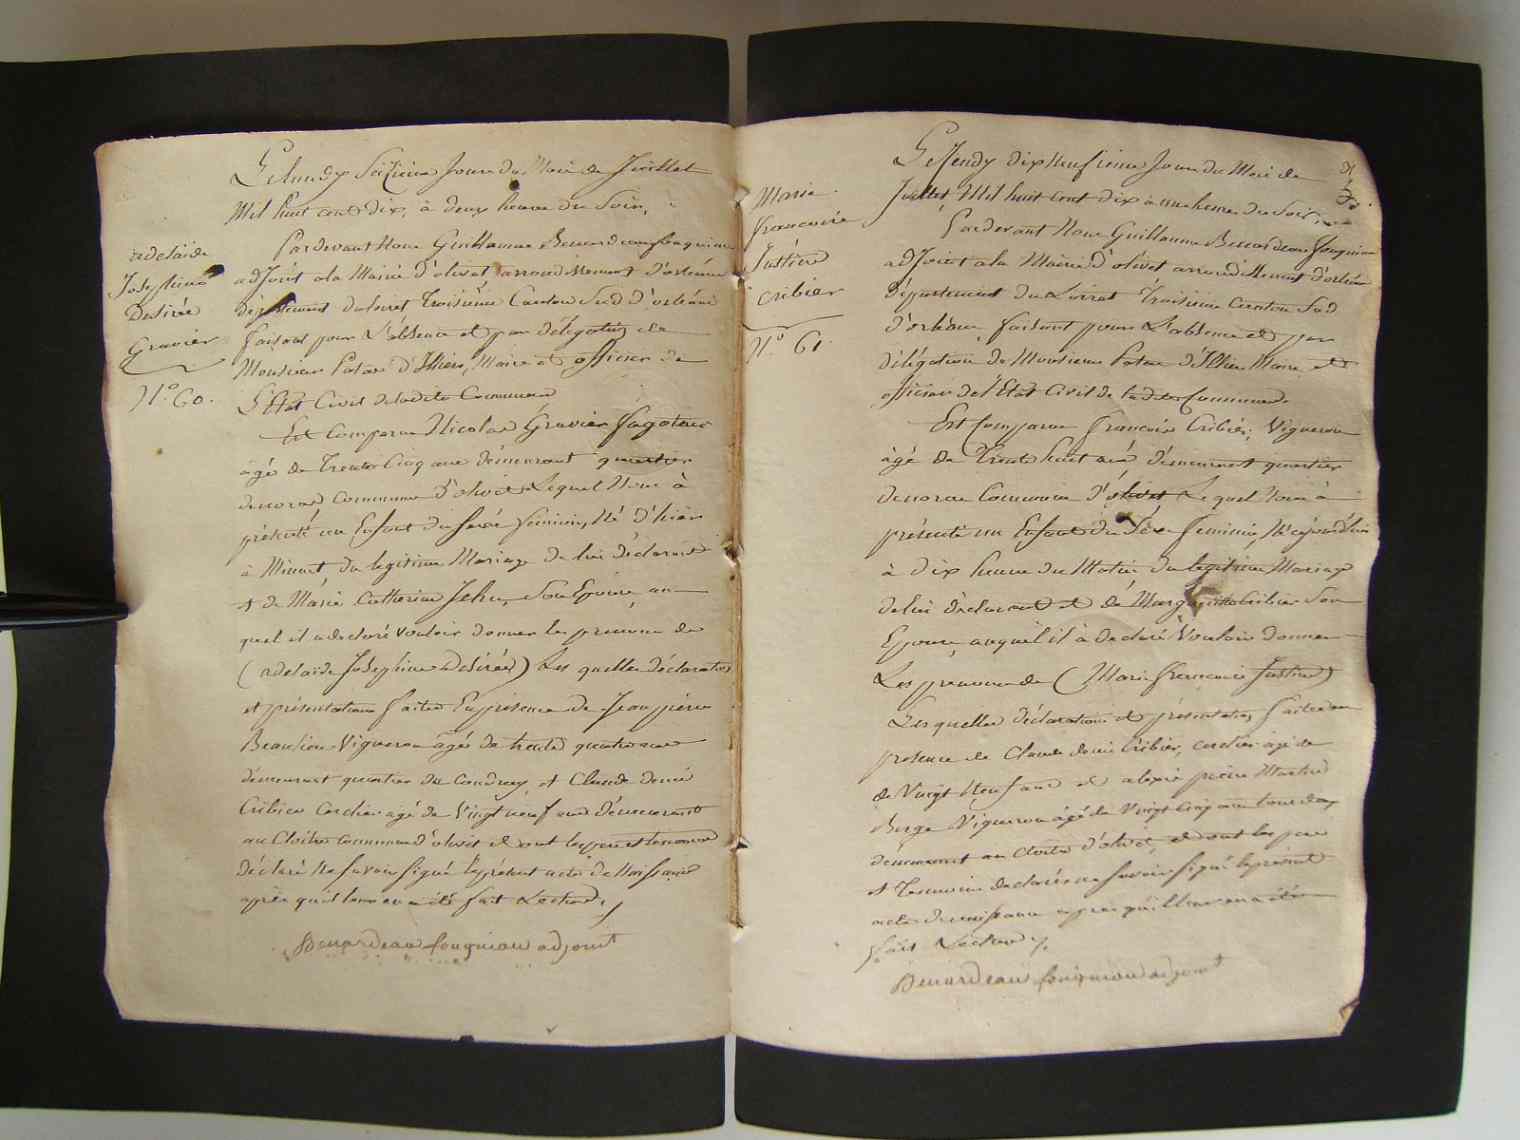 Le lundy Seizieme Jour du Mois de Juillet
Mil huit cent dix, à deux heure du Soir,
Pardevant Nous Guillaume Benardeau fouqueiau
adjoint a la Mairie d'olivet arrondissement d'orléans
département du loiret Troisième Canton Sud d'orléans
faisant pour L'absence et par délégation de
Monsieur Patas d'Illiers, Maire et officier de
L'Etat Civil de ladite Commune
Est Comparu Nicolas Gravier fagoteur
âgé de Trente Cinq ans démeurant quartier
de noras Commune d'olivet Lequel Nous à
présenté un Enfant du sexe féminin, Né d'hier
à Minuit, du legitime Mariage de lui déclarant
et de Marie Catherine Jehu, Son Epouse, au
quel il a declaré Vouloir donner les prenoms de
(adelaïde Josephine desirée) Les quelles déclaration
et présentation faites En présence de Jean pierre
Beaulieu Vigneron âgé de trente quatre ans
démeurant quartier du Coudray et Claude denis
Cribier Cordier agé de Vingt neuf ans démeurant
au Cloitre Commune d'olivet et ont les pere et temoins
déclaré Ne Savoir Signé le présent acte de Naissance
après qu'il leur en a été fait Lecture,
Benardeau fouqueiau adjoint
adelaïde
Josephine
Desirée
Gravier
N.o 60.
Le Jeudy dix Neufieme Jour du Mois de
Juillet Mil huit Cent dix à une heure du Soir,
Pardevant Nous Guillaume Benardeau fouqueiau
adjoint a la Mairie d'olivet arrondissement d'orléans
département du Loiret Troisieme Canton Sud
d'orléans, faisant pour L'absence et par
délégation de Monsieur Patas d'Illiers Maire et
officier de l'Etat Civil de ladite Commune
Est Comparu François Cribier, Vigneron
âgé de Trente huit ans démeurant quartier
de noras Commune d'olivet Lequel Nous à
présenté un Enfant du Séxe féminin, Né aujourd'hui
à dix heure du Matin du legitime Mariage
de lui déclarant et de Cribier Son
Epouse, auquel il à declaré Vouloir donner
Les prenoms de (Marie francoise Justine)
Les quelles déclaration et présentation faites en
présence de Claude denis Cribier, cordier agé de
de Vingt Neuf ans et alexis pierre Martin
Berge Vigneron âgé de Vingt Cinq ans tous deux
demeurant au Cloitre d'olivet, et ont les pere
et Temoins declarés ne Savoir Signé le présent
acte de naissance apres qu'il leur en a été
fait Lecture
Benardeau fouqueiau adjoint
Marie
francoise
Justine
cribier
N.o 61.